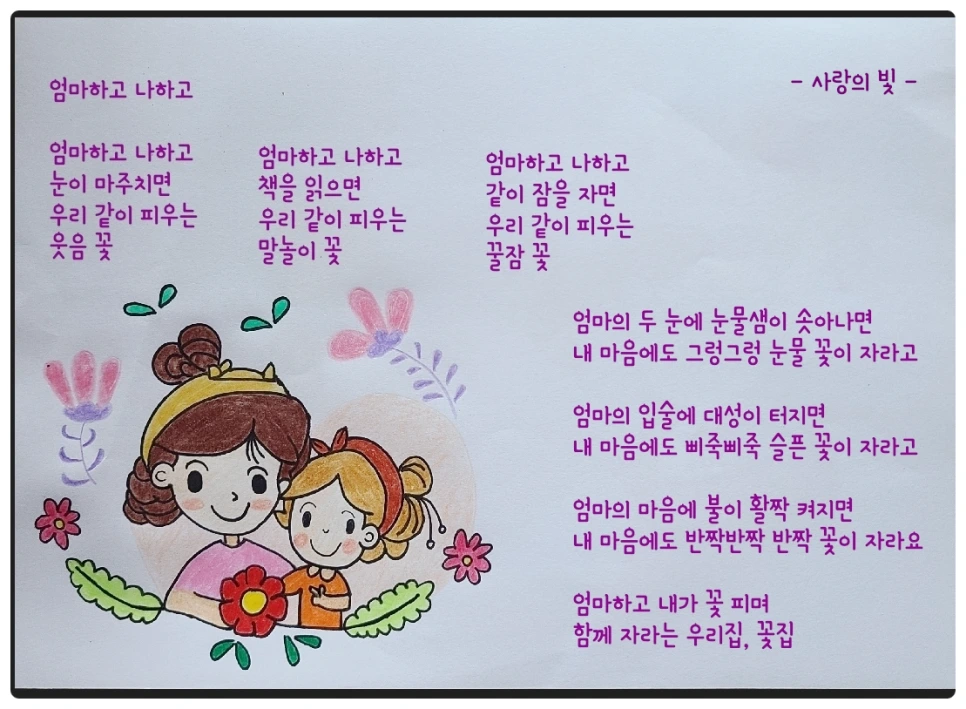 엄마하고 나하고
- 사랑의 빛 -
엄마하고 나하고
눈이 마주치면
우리 같이 피우는
웃음 꽃
엄마하고 나하고
책을 읽으면
우리 같이 피우는
말놀이 꽃
엄마하고 나하고
같이 잠을 자면
우리 같이 피우는
꿀잠 꽃
엄마의 두 눈에 눈물샘이 솟아나면
내 마음에도 그렁그렁 눈물 꽃이 자라고
엄마의 입술에 대성이 터지면
내 마음에도 삐죽삐죽 슬픈 꽃이 자라고
엄마의 마음에 불이 활짝 켜지면
내 마음에도 반짝반짝 반짝 꽃이 자라요
엄마하고 내가 꽃 피며
함께 자라는 우리집, 꽃집